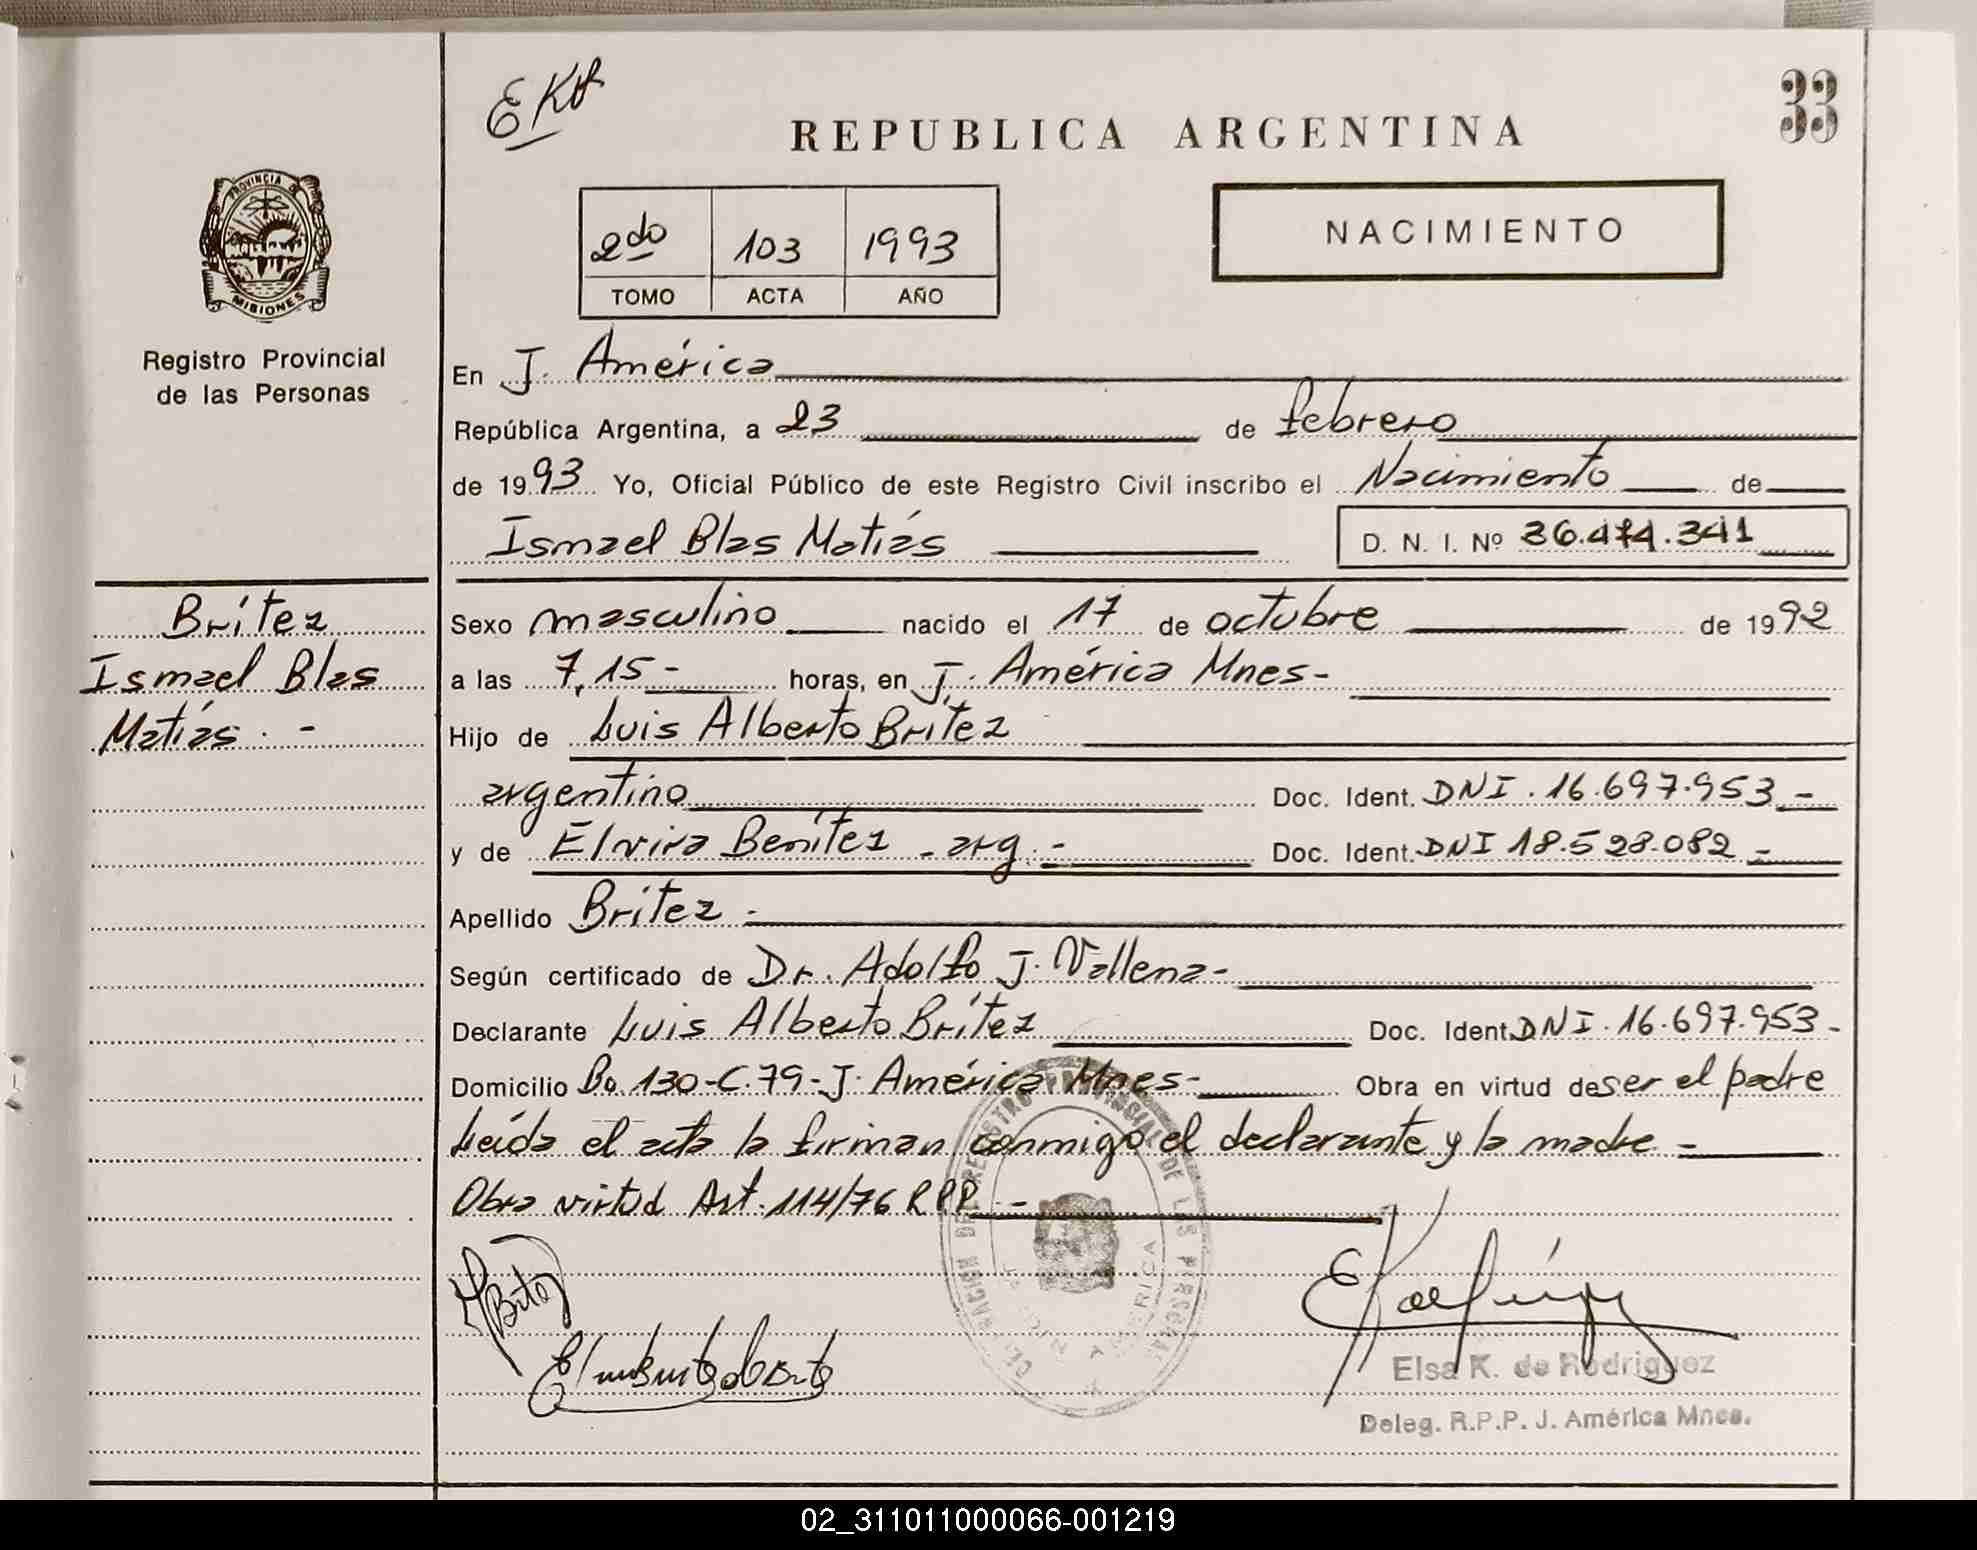 EKR
33
REPUBLICA ARGENTINA
PROVINCIA DE
MISIONES
Registro Provincial
de las Personas
2do 103 1993
TOMO ACTA AÑO
NACIMIENTO
En J. América
República Argentina, a 23 de febrero
de 1993 Yo, Oficial Público de este Registro Civil inscribo el Nacimiento de
Ismael Blas Matías D. N. I. Nº 36.474.341
Britez
Ismael Blas
Matías. -
Sexo masculino nacido el 17 de octubre de 1992
a las 7,15 - horas, en J. América Mnes -
Hijo de Luis Alberto Brítez
argentino Doc. Ident. DNI. 16.697.953 -
y de Elvira Benítez - arg. - Doc. Ident. DNI 18.528.082 -
Apellido Britez -
Según certificado de Dr. Adolfo J. Vallena -
Declarante Luis Alberto Brítez Doc. Ident. DNI. 16.697.953 -
Domicilio Bo 130-C.79- J. América Mnes - Obra en virtud de ser el padre
Leída el acta la firman conmigo el declarante y la madre -
Obra virtud Art. 114/76 RPP -
DELEGACION DEL REGISTRO PROVINCIAL DE LAS PERSONAS
JARDIN AMERICA
Elsa K. de Rodriguez
Deleg. R.P.P. J. América Mnes.
02_311011000066-001219